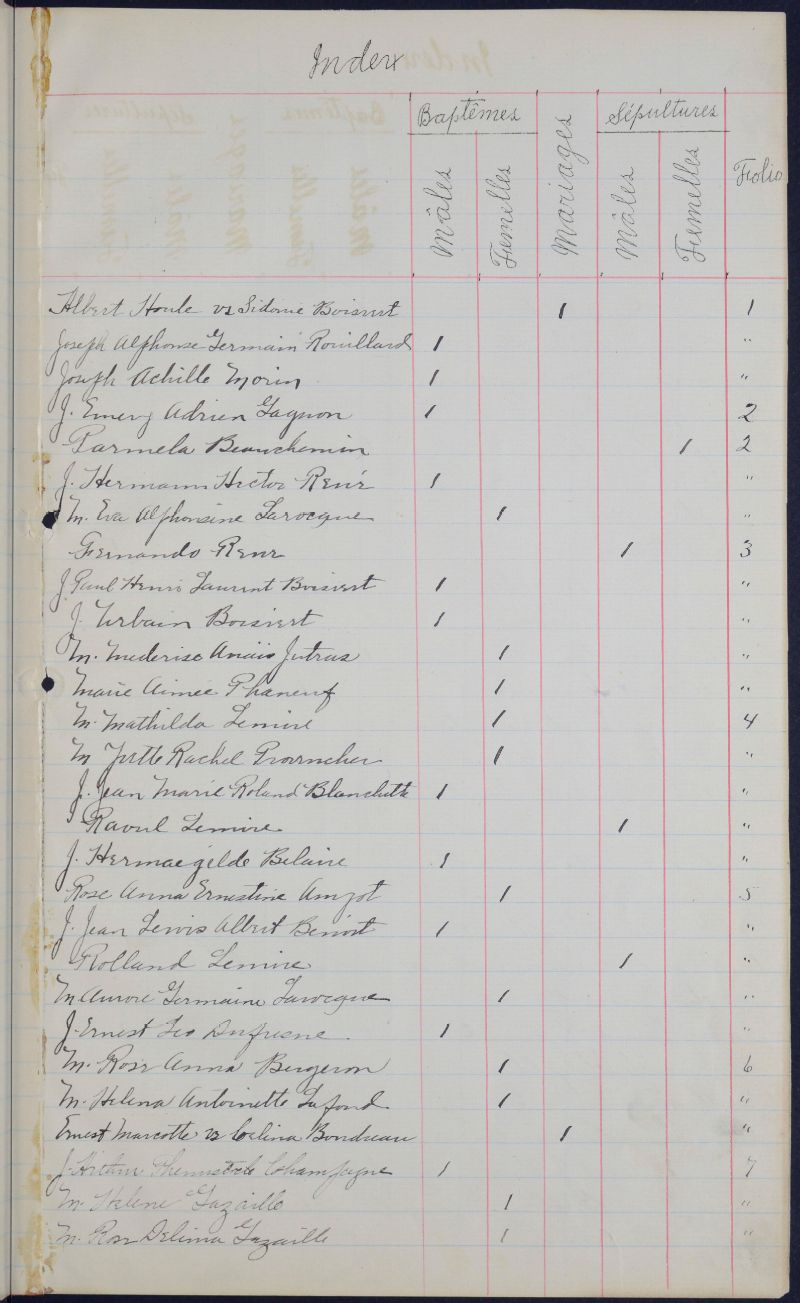 Index
Baptêmes Sépultures
Mâles Femelles Mariages Mâles Femelles Folio
Albert Houle vs Sidonie Boisvert 1 1
Joseph Alphonse Germain Rouillard 1 "
Joseph Achille Morin 1 "
J. Emery Adrien Gagnon 1 2
Parmela Beauchemin 1 2
J. Hermann Hector René 1 "
M. Eva Alphonsine Larocque 1 "
Fernando René 1 3
J. Paul Henri Laurent Boisvert 1 "
J. Urbain Boisvert 1 "
M. Mederise Anaïs Jutras 1 "
Marie Aimée Phaneuf 1 "
M. Mathilda Lemire 1 4
M Yvette Rachel Provencher 1 "
J. Jean Marie Roland Blanchette 1 "
Raoul Lemire 1 "
J. Hermaegilde Belaire 1 "
Rose Anna Ernestine Amyot 1 5
J. Jean Lewis Albert Benoit 1 "
Rolland Lemire 1 "
M Aurore Germaine Larocque 1 "
J. Ernest Leo Dufresne 1 "
M. Rose Anna Bergeron 1 6
M. Helena Antoinette Lafond 1 "
Ernest Marcotte vs Celina Boudreau 1 "
J. Arthur Champagne 1 7
M. Helene Gazaille 1 "
M. Rose Delima Gazaille 1